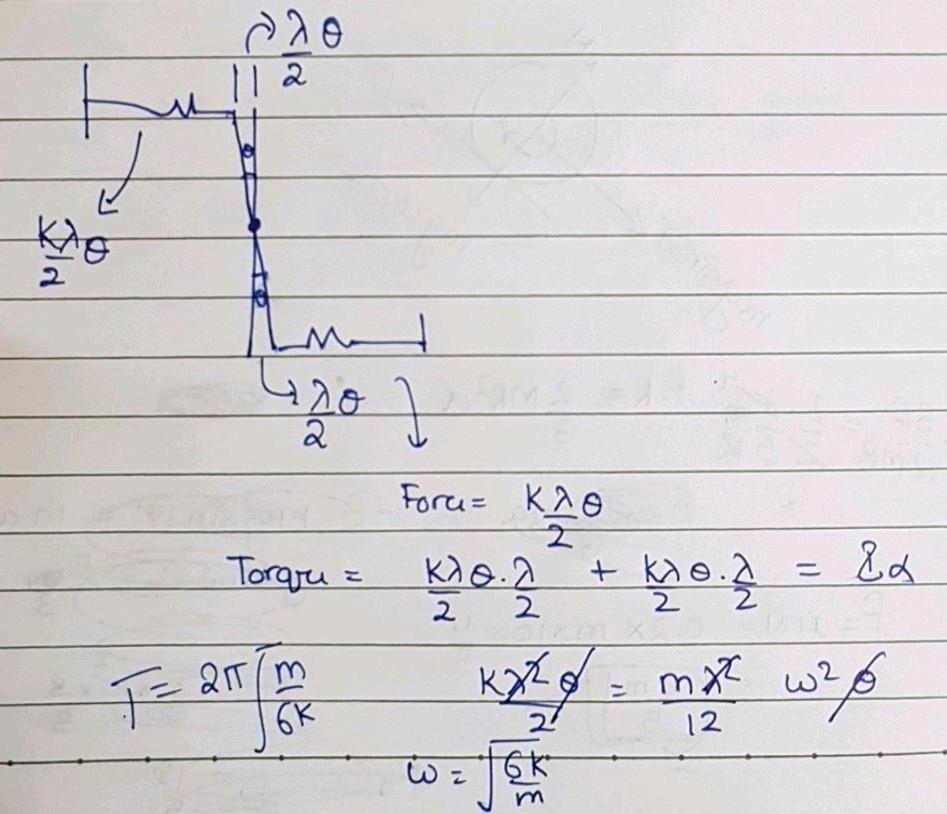 λ/2 θ
Kλ/2 θ
λθ/2
Force = Kλ/2 θ
Torque = Kλ/2 θ . λ/2 + Kλ/2 θ . λ/2 = Iα
T = 2π √(m/6K)
Kλ²/2 θ = mλ²/12 ω² θ
ω = √(6K/m)